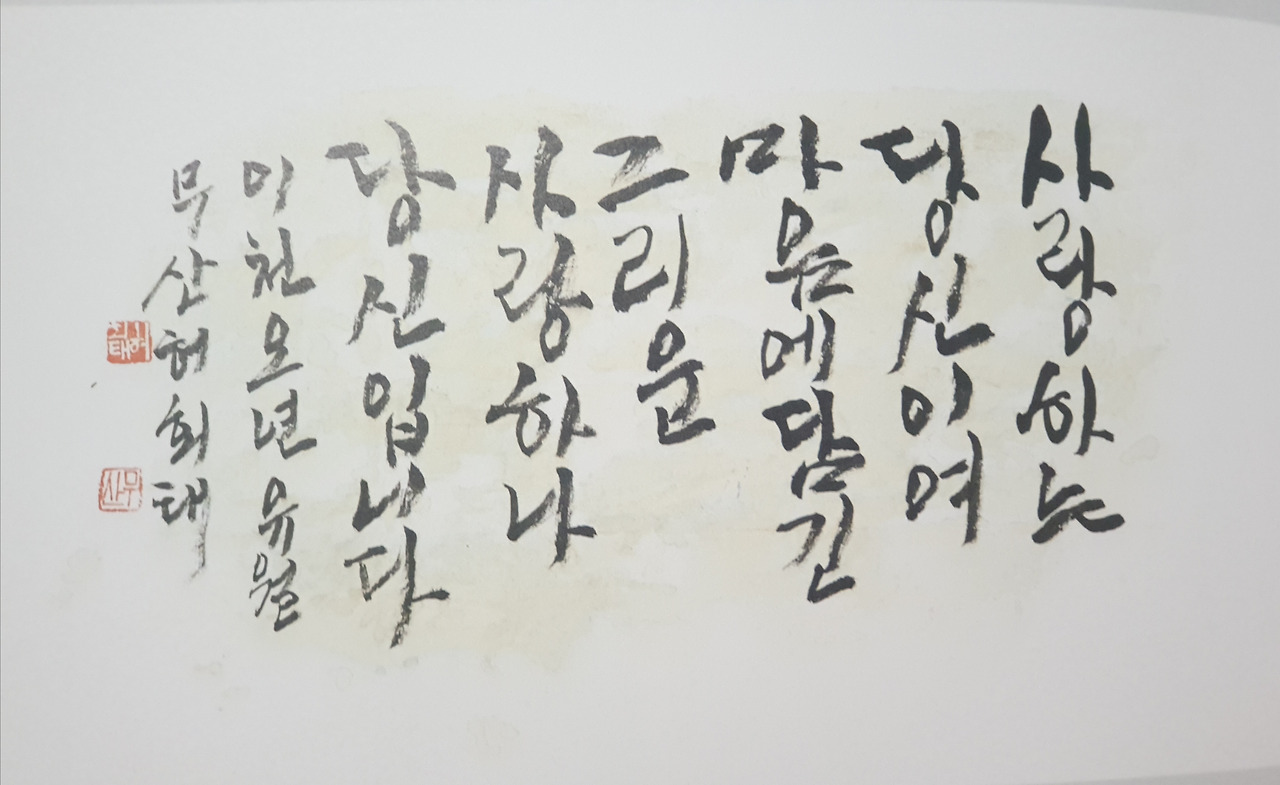 사랑하는
당신이여
마음에담긴
그리운
사랑하나
당신입니다
이천오년유월
무산허희태
허희태
무산